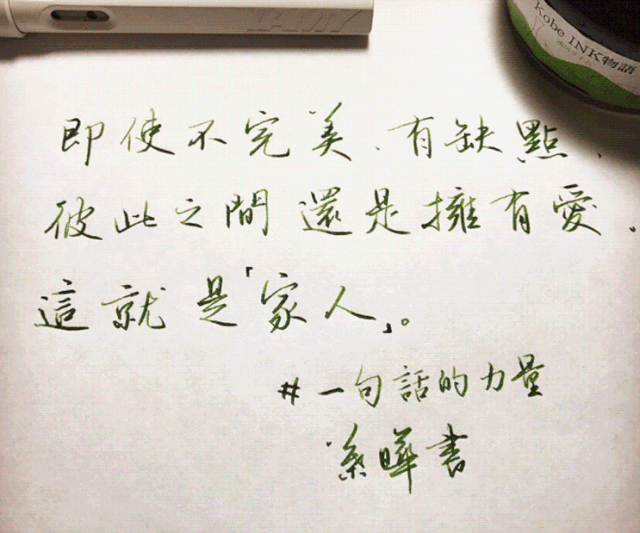 Kobe INK物語
即使不完美、有缺點、
彼此之間還是擁有愛。
這就是「家人」。
#一句話的力量